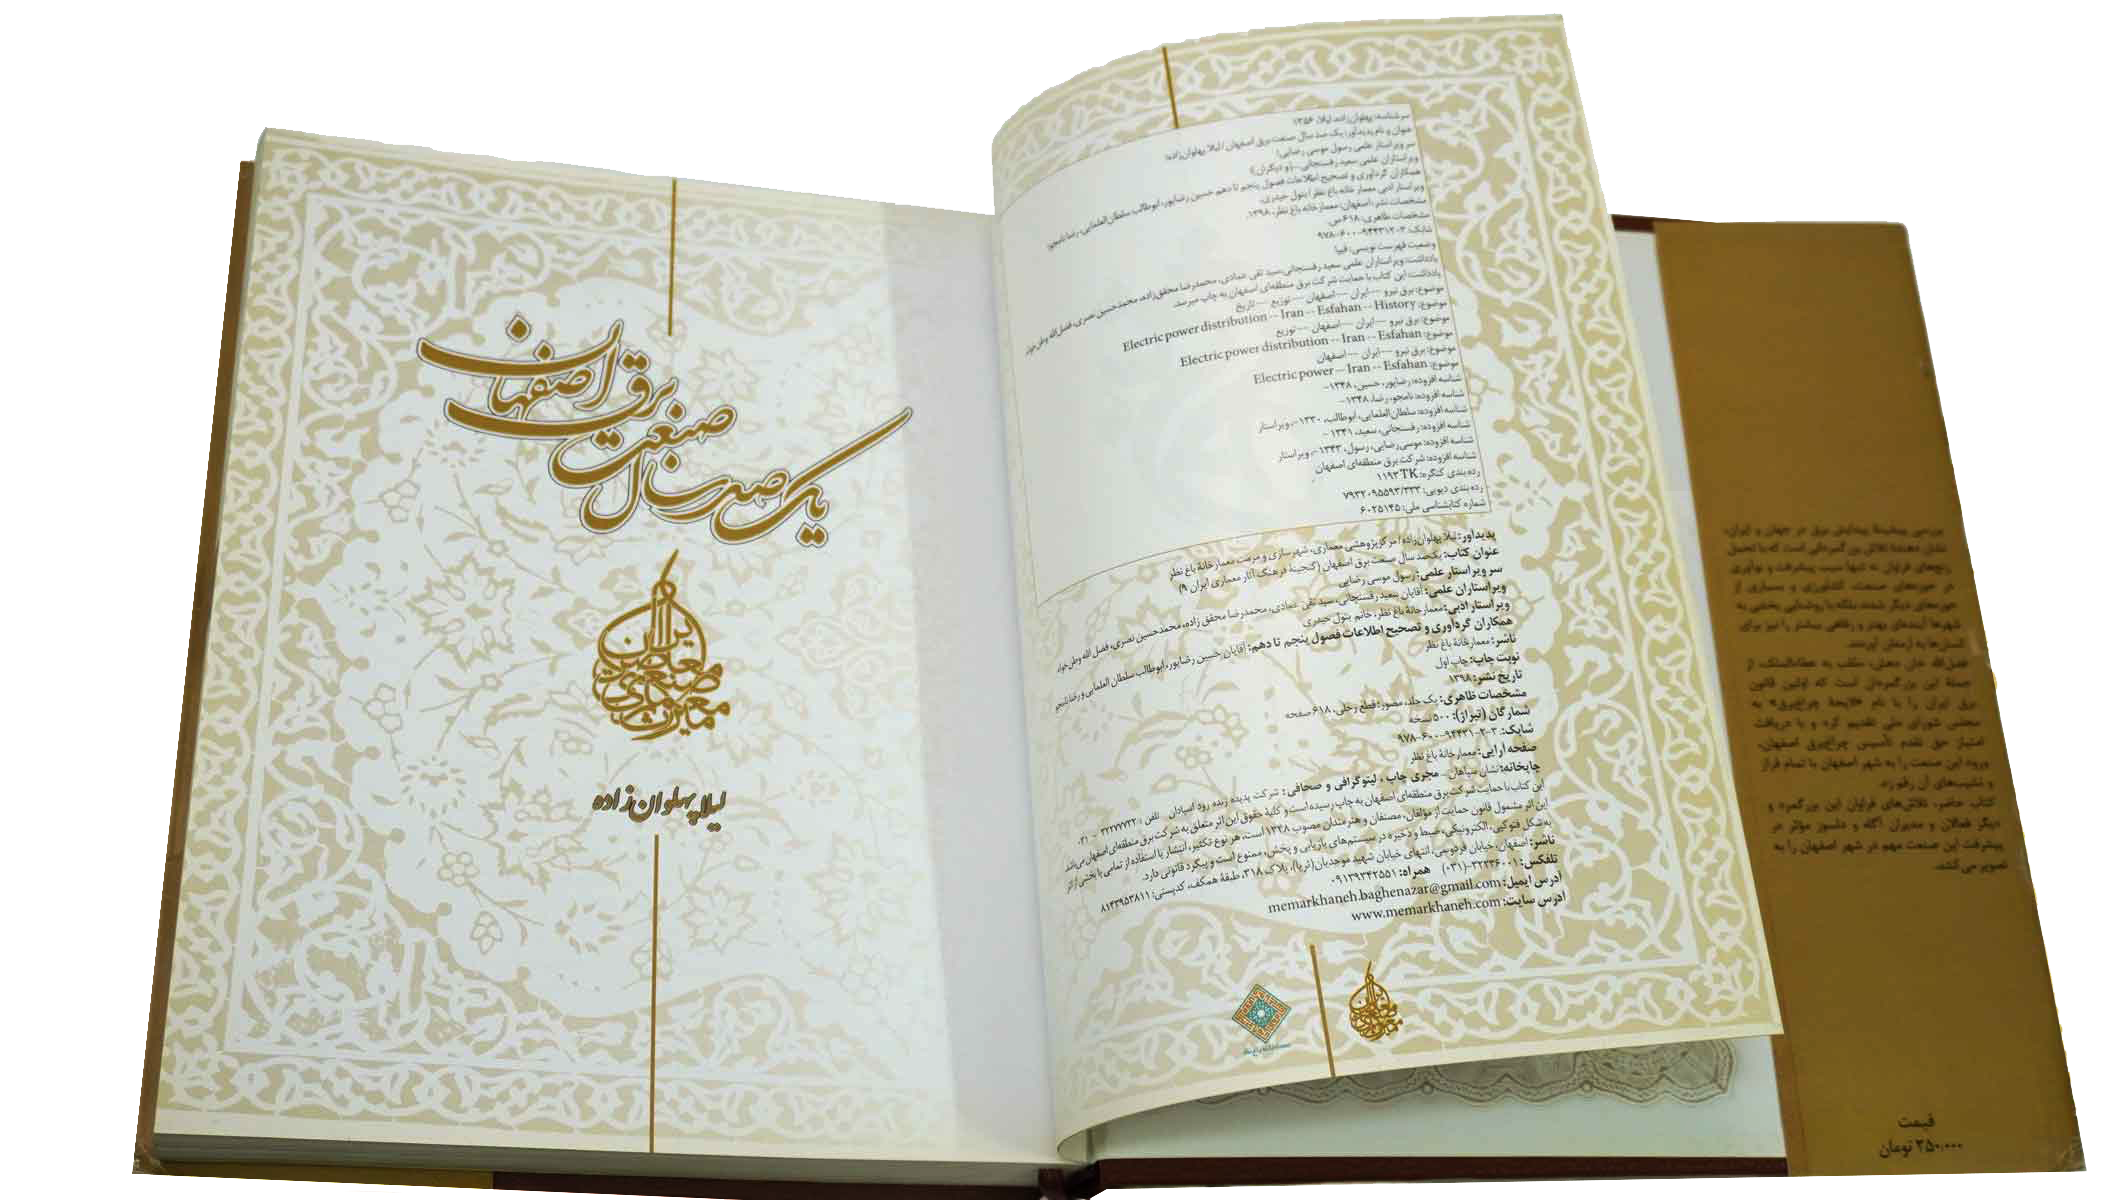 یک صد سال صنعت برق اصفهان
لیلا پهلوان‌زاده
سرشناسه: پهلوان‌زاده، لیلا، ۱۳۵۶
عنوان و نام پدیدآور: یک صد سال صنعت برق اصفهان / لیلا پهلوان‌زاده؛
سر ویراستار علمی رسول موسی رضایی؛
ویراستاران علمی سعید رفسنجانی...(و دیگران)؛
همکاران گردآوری و تصحیح اطلاعات فصول پنجم تا دهم حسین رضاپور، ابوطالب سلطان العلمایی، رضا نامجو؛
ویراستار ادبی معمار خانه باغ نظر ( بتول حیدری.
مشخصات نشر: اصفهان: معمارخانه باغ نظر، ۱۳۹۸.
مشخصات ظاهری: ۶۱۸ ص.
شابک: ۳-۲-۹۴۴۳۱-۶۰۰-۹۷۸
وضعیت فهرست نویسی: فیپا
یادداشت: ویراستاران علمی سعید رفسنجانی، سید تقی عمادی، محمدرضا محقق‌زاده، محمدحسین نصری، فضل الله وطن خواه
یادداشت: این کتاب با حمایت شرکت برق منطقه‌ای اصفهان به چاپ میرسد.
موضوع: برق نیرو -- ایران -- اصفهان -- توزیع -- تاریخ
موضوع: Electric power distribution -- Iran -- Esfahan -- History
موضوع: برق نیرو -- ایران -- اصفهان -- توزیع
موضوع: Electric power distribution -- Iran -- Esfahan
موضوع: برق نیرو -- ایران -- اصفهان
موضوع: Electric power -- Iran -- Esfahan
شناسه افزوده: رضاپور، حسین، ۱۳۴۸-
شناسه افزوده: نامجو، رضا، ۱۳۴۸-
شناسه افزوده: سلطان العلمایی، ابوطالب، ۱۳۳۰-، ویراستار
شناسه افزوده: رفسنجانی، سعید، ۱۳۴۱-
شناسه افزوده: موسی رضایی، رسول، ۱۳۴۳-، ویراستار
شناسه افزوده: شرکت برق منطقه‌ای اصفهان
رده بندی کنگره: TK ۱۱۹۳
رده بندی دیویی: ۳۳۳/۷۹۳۲۰۹۵۵۹۳
شماره کتابشناسی ملی: ۶۰۲۵۱۴۵
پدیدآور: لیلا پهلوان‌زاده/ مرکز پژوهشی معماری، شهرسازی و مرمت معمارخانهٔ باغ نظر
عنوان کتاب: یکصد سال صنعت برق اصفهان (گنجینهٔ فرهنگ آثار معماری ایران ۹)
سر ویراستار علمی: رسول موسی رضایی
ویراستاران علمی: آقایان سعید رفسنجانی، سید تقی عمادی، محمدرضا محقق زاده، محمدحسین نصری، فضل الله وطن خواه
ویراستار ادبی: معمارخانهٔ باغ نظر، خانم بتول حیدری
همکاران گردآوری و تصحیح اطلاعات فصول پنجم تا دهم: آقایان حسین رضاپور، ابوطالب سلطان العلمایی و رضا نامجو
ناشر: معمارخانهٔ باغ نظر
نوبت چاپ: چاپ اول
تاریخ نشر: ۱۳۹۸
مشخصات ظاهری: یک جلد، مصور؛ قطع رحلی، ۶۱۸ صفحه
شمارگان (تیراژ): ۵۰۰ نسخه
شابک: ۳-۲-۹۴۴۳۱-۶۰۰-۹۷۸
صفحه آرایی: معمارخانهٔ باغ نظر
چاپخانه: نشان سپاهان - مجری چاپ، لیتوگرافی و صحافی: شرکت پدیده زنده رود اسپادان تلفن : ۳۲۲۷۷۷۲۲ - ۰۳۱
این کتاب با حمایت شرکت برق منطقه‌ای اصفهان به چاپ رسیده است و کلیهٔ حقوق این اثر متعلق به شرکت برق منطقه‌ای اصفهان می‌باشد
این اثر مشمول قانون حمایت از مؤلفان، مصنفان و هنرمندان مصوب ۱۳۴۸ است، هر نوع تکثیر، انتشار یا استفاده از تمامی یا بخشی از اثر
به شکل فتوکپی، الکترونیکی، ضبط و ذخیره در سیستم‌های بازیابی و پخش، ممنوع است و پیگرد قانونی دارد.
ناشر: اصفهان، خیابان فردوسی، انتهای خیابان شهید موحدیان(ثریا)، پلاک ۳۱۸، طبقهٔ همکف، کدپستی: ۸۱۳۳۹۵۳۸۱۱
تلفکس: ۳۲۲۳۶۰۰۱-(۰۳۱) همراه: ۰۹۱۳۹۳۴۲۵۵۱
آدرس ایمیل: memarkhaneh.baghenazar@gmail.com
آدرس سایت: www.memarkhaneh.com
بررسی پیشینهٔ پیدایش برق در جهان و ایران،
نشان دهندهٔ تلاش بزرگمردانی است که با تحمل
رنج‌های فراوان نه تنها سبب پیشرفت و نوآوری
در حوزه‌های صنعت، کشاورزی و بسیاری از
حوزه‌های دیگر شدند بلکه با روشنایی بخشی به
شهرها آینده‌ای بهتر و رفاهی بیشتر را نیز برای
انسان‌ها به ارمغان آوردند.
فضل‌الله خان دهش، ملقب به عطاءالملک، از
جملهٔ این بزرگمردان است که اولین قانون
برق ایران را با نام «لایحهٔ چراغ‌برق» به
مجلس شورای ملی تقدیم کرد و با دریافت
امتیاز حق تقدم تأسیس چراغ‌برق اصفهان،
ورود این صنعت را به شهر اصفهان با تمام فراز
و نشیب‌های آن رقم زد.
کتاب حاضر، تلاش‌های فراوان این بزرگمرد و
دیگر فعالان و مدیران آگاه و دلسوز مؤثر در
پیشرفت این صنعت مهم در شهر اصفهان را به
تصویر می‌کشد.
قیمت
۲۵۰,۰۰۰ تومان